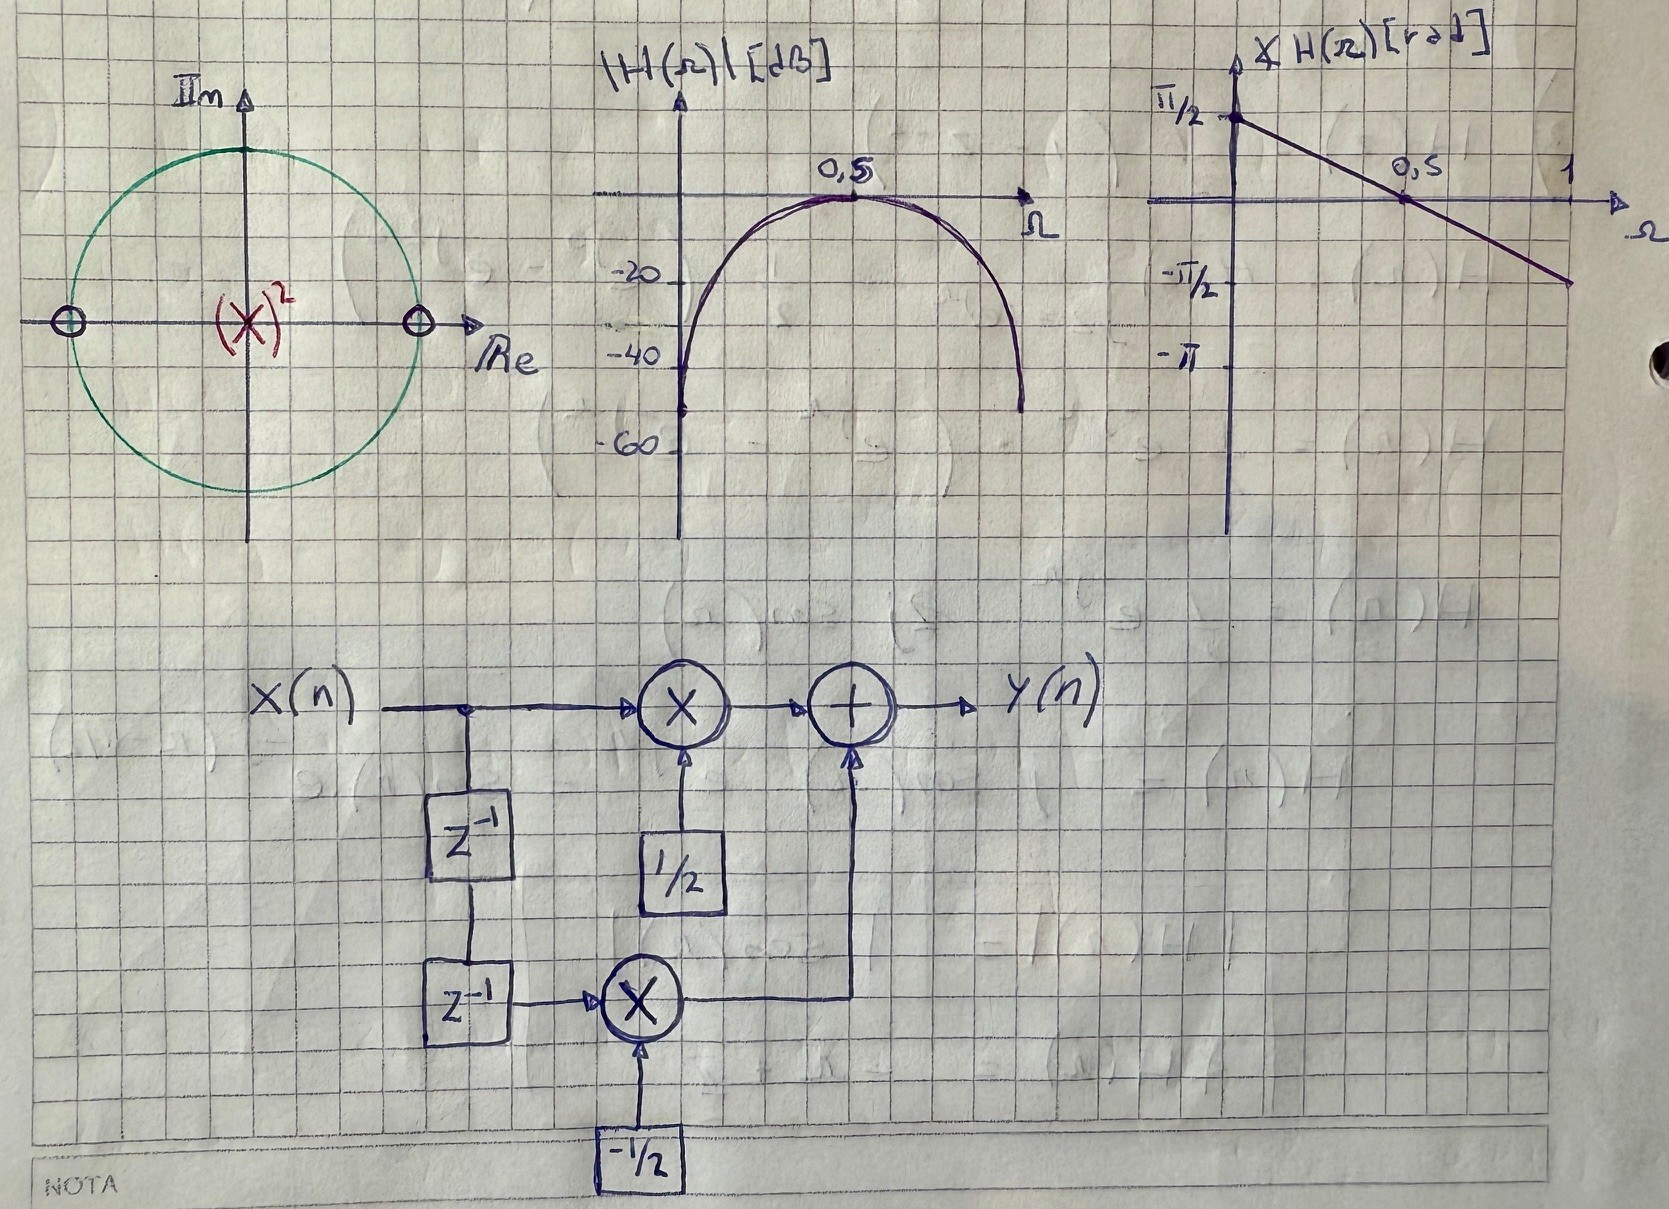 IIm
Re
(X)²
|H(Ω)| [dB]
0,5
Ω
-20
-40
-60
∡ H(Ω) [rad]
π/2
0,5
1
Ω
-π/2
-π
X(n)
X
+
Y(n)
Z⁻¹
1/2
Z⁻¹
X
-1/2
NOTA